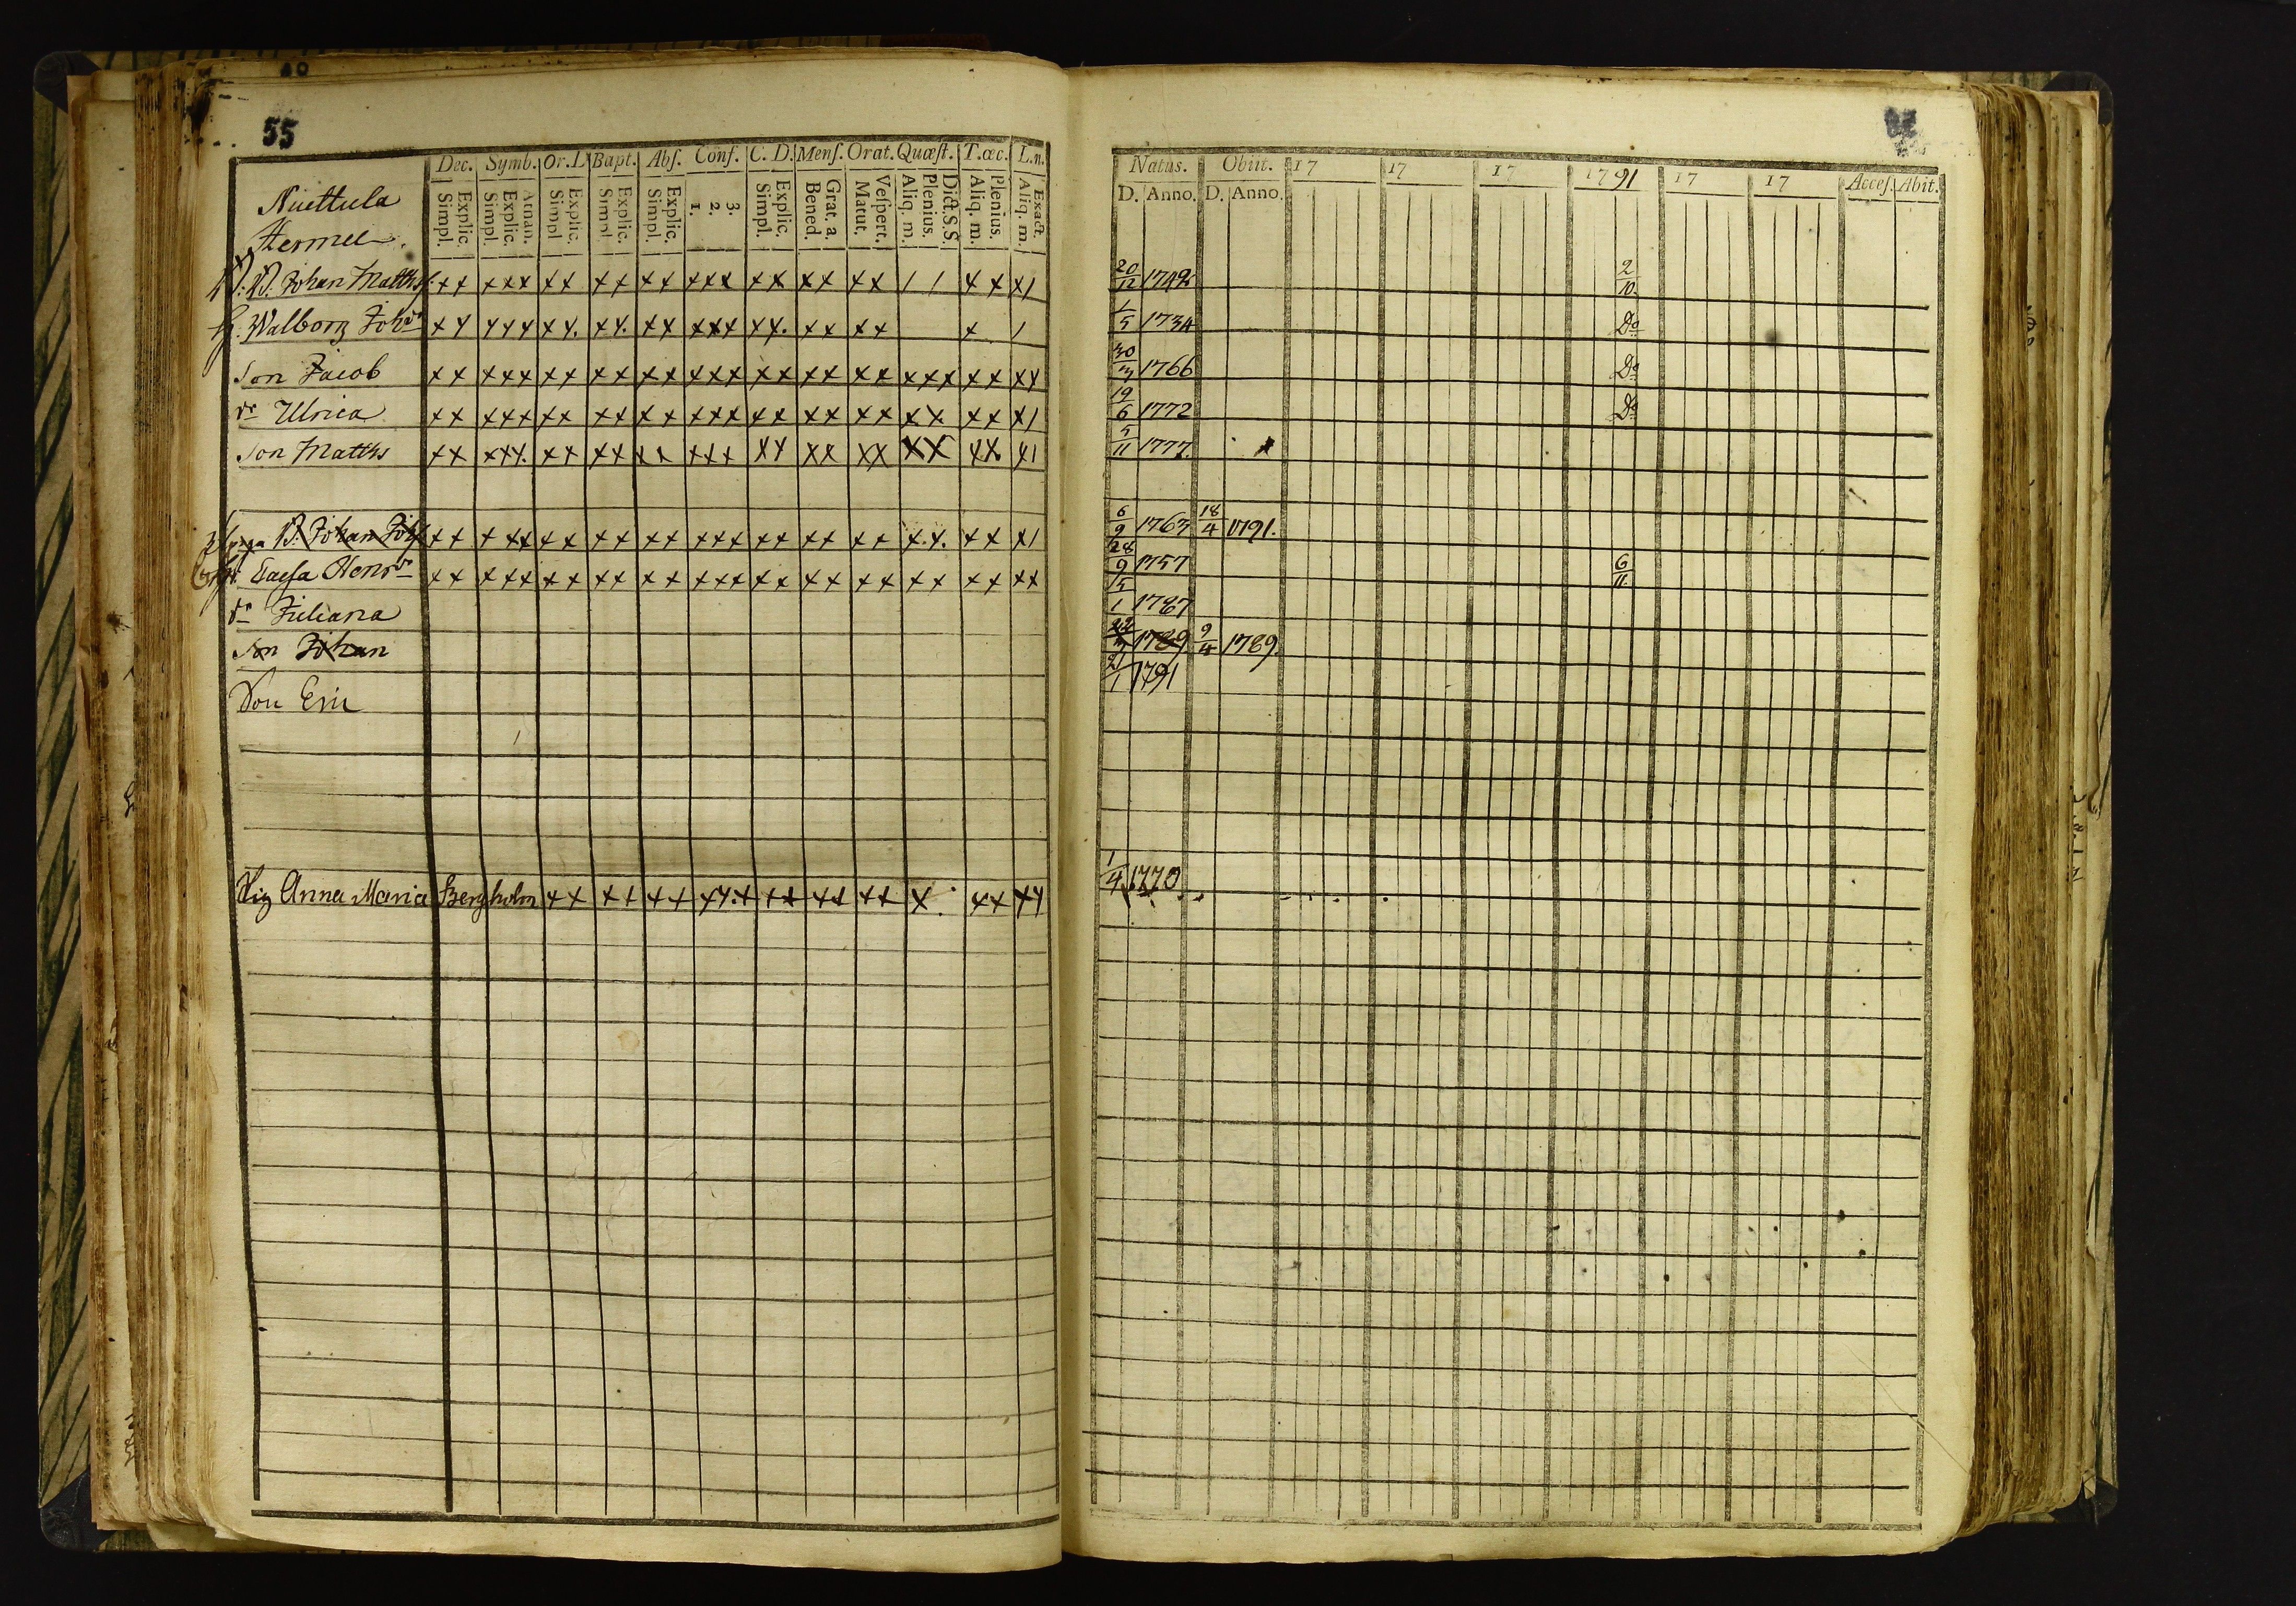 55
Dec. Symb. Or.D. Bapt. Abſ. Conf. C. D. Menſ. Orat. Quæſt. T.œc. L.n.
Simpl. Explic. Simpl. Explic. Athan. Simpl. Explic. Simpl. Explic. Simpl. Explic. 1. 2. 3. Simpl. Explic. Bened. Grat. a. Matut. Veſpert. Aliq. m. Plenius. Dict.S.S. Aliq. m. Plenius. Aliq. m. Exact.
Nuettula
Johan Matths ++ +++ ++ ++ ++ +++ ++ ++ ++ 11 ++ +1
H. Walborg Joh dr ++ +++ ++. ++. ++ +++ ++. ++ ++ + 1
Son Jacob ++ +++ ++ ++ ++ +++ ++ ++ ++ +++ ++ ++
dr Ulrica ++ +++ ++ ++ ++ +++ ++ ++ ++ ++ ++ +1
Son Matths ++ +++. ++ ++ ++ +++ ++ ++ ++ ++ ++ +1
B. Johan Joh ++ +++ ++ ++ ++ +++ ++ ++ ++ +.+. ++ +1
Caisa Henr dr ++ +++ ++ ++ ++ +++ ++ ++ ++ ++ ++ ++
dr Juliana
Son Johan
Son Eric
Pig Anna Maria Bergholm ++ ++ ++ ++.+ ++ ++ ++ + ++ ++
Natus. Obiit. 17 17 17 1791 17 17 Acceſ. Abit.
D. Anno. D. Anno.
20/12 1742 2/10.
1/5 1734 Do
30/3 1766 Do
19/6 1772 Do
5/11 1777.
6/9 1763 18/4 1791.
28/9 1757 6/11.
15/1 1787
1789 9/4 1789.
21/1 1791
1/4 1770